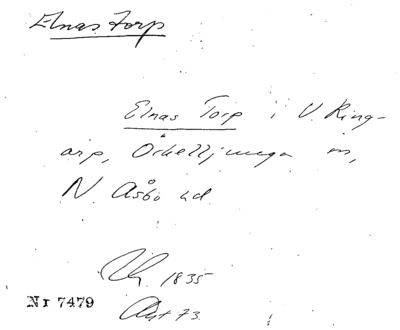 Elnas Torp
Elnas Torp i V. Ring-
arp, Örkelljunga sn,
N. Åsbo hd
1835
Nr 7479
73.